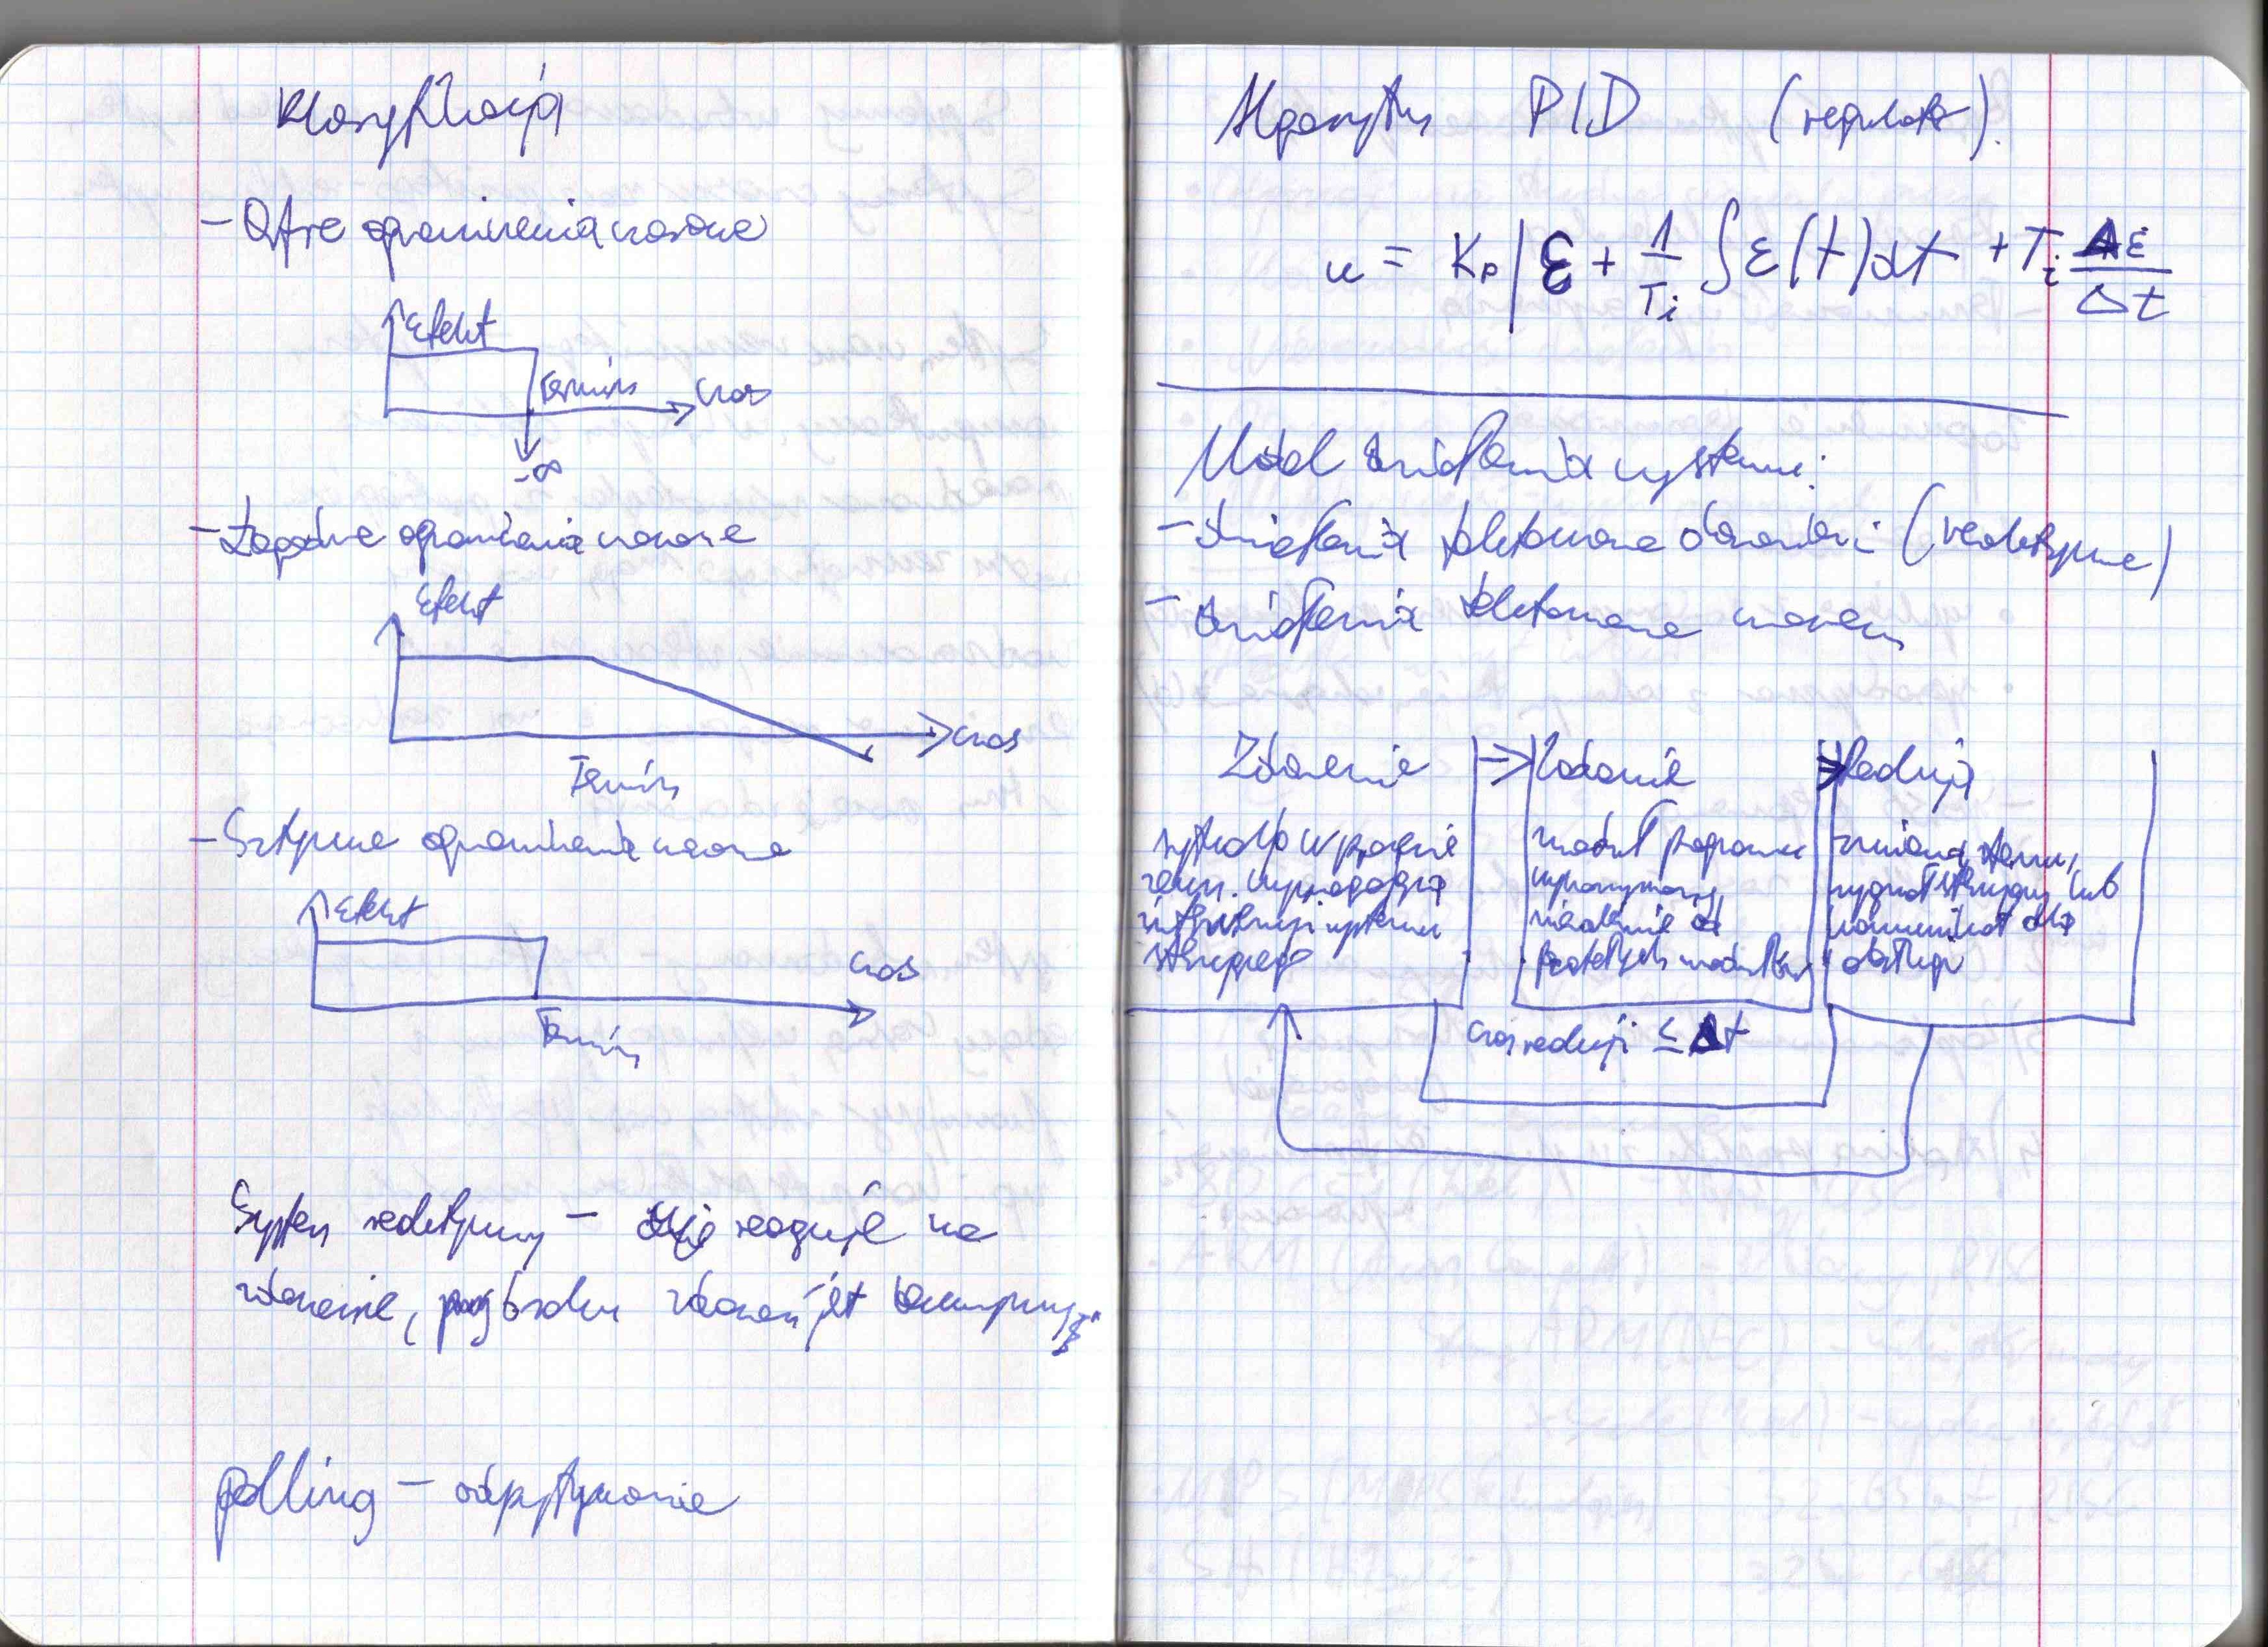 Klasyfikacja
- Ostre ograniczenia czasowe
Efekt
Termin
czas
-∞
- Łagodne ograniczenia czasowe
Efekt
czas
Termin
- Sztywne ograniczenia czasowe
Efekt
czas
Termin
System reaktywny - reaguje na
zdarzenie, zdarzeń jest
polling - odpytywanie
Algorytm PID (regulator).
u = Kp | ε + 1/Ti ∫ ε(t)dt + Ti Δε/Δt
Model działania systemu:
- działania sterowane zdarzeniami (reaktywne)
- działania sterowane czasem
Zdarzenie => Zadanie => Reakcja
sytuacja w procesie
zewn. wymagająca
interwencji systemu
sterującego
moduł programu
wykonywany
niezależnie od
pozostałych modułów
zmiana stanu,
sygnał sterujący lub
komunikat dla
obsługi
czas reakcji ≤ Δt